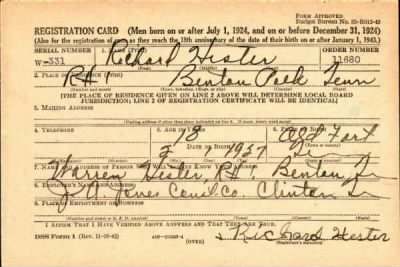 FORM APPROVED
Budget Bureau No. 33-R012-42
REGISTRATION CARD—(Men born on or after July 1, 1924, and on or before December 31, 1924)
(Also for the registration of men as they reach the 18th anniversary of the date of their birth on or after January 1, 1943.)
SERIAL NUMBER 1. NAME (Print) ORDER NUMBER
W-331 Richard Hester 11680
2. PLACE OF RESIDENCE (Print)
R#1 Benton Polk Tenn
[THE PLACE OF RESIDENCE GIVEN ON LINE 2 ABOVE WILL DETERMINE LOCAL BOARD
JURISDICTION; LINE 2 OF REGISTRATION CERTIFICATE WILL BE IDENTICAL]
3. MAILING ADDRESS
4. TELEPHONE 5. AGE IN YEARS 6. PLACE OF BIRTH
18 Old Fort
7. NAME AND ADDRESS OF PERSON WHO WILL ALWAYS KNOW YOUR ADDRESS
Warren Hester, R#1 Benton, Tn
8. EMPLOYER'S NAME AND ADDRESS
J. A. Jones Const. Co. Clinton Tn
I AFFIRM THAT I HAVE VERIFIED ABOVE ANSWERS AND THAT THEY ARE TRUE.
DSS Form 1 (Rev. 11-16-42) (OVER) Richard Hester